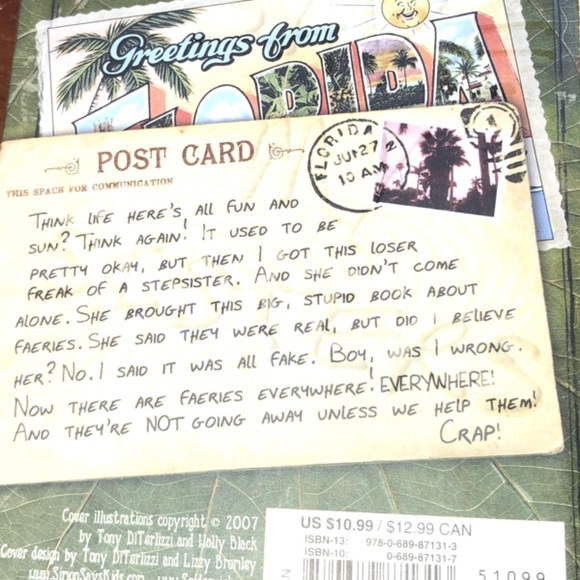 Greetings from
FLORIDA
POST CARD
THIS SPACE FOR COMMUNICATION
FLORIDA
JUN 27
10 AM
THINK LIFE HERE'S ALL FUN AND
SUN? THINK AGAIN! IT USED TO BE
PRETTY OKAY, BUT THEN I GOT THIS LOSER
FREAK OF A STEPSISTER. AND SHE DIDN'T COME
ALONE. SHE BROUGHT THIS BIG, STUPID BOOK ABOUT
FAERIES. SHE SAID THEY WERE REAL, BUT DID I BELIEVE
HER? NO. I SAID IT WAS ALL FAKE. BOY, WAS I WRONG.
NOW THERE ARE FAERIES EVERYWHERE! EVERYWHERE!
AND THEY'RE NOT GOING AWAY UNLESS WE HELP THEM!
CRAP!
Cover illustrations copyright © 2007
by Tony DiTerlizzi and Holly Black
Cover design by Tony DiTerlizzi and Lizzy Bromley
www.SimonSaysKids.com
US $10.99 / $12.99 CAN
ISBN-13: 978-0-689-87131-3
ISBN-10: 0-689-87131-7
51099